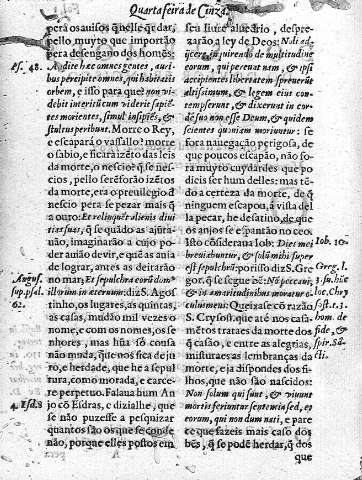 Quarta feira de Cinza.
perà os auisos q̃ nelle q̃r dar,
pello muyto que importão
pera desengano dos homẽs:
Ps. 48.
Audite hæc omnes gentes, auri-
bus percipite omnes, qui habitatis
orbem, e isso para que non vi-
debit interitum cum viderit sapiẽ-
tes morientes, simul insipiẽs, &
stultus peribunt. Morre o Rey,
e escaparà o vassallo? morre
o sabio, e ficarà izẽto das leis
da morte, o nescio? q̃ se nes-
cios, pello serẽ forão izẽtos
da morte, era o preuilegio d
nescio pera se pezar mais q̃
a ouro: Et relinquẽt alienis diui
tias suas, q̃ se quãdo as ajũta-
uão, imaginarão a cujo po-
der auião devir, e que as auia
de lograr, antes as deitarão
no mar: Et sepulchra eorũ dom9
illorum in æternum: diz S. Agos
Augus.
sup. psal.
62.
tinho, os lugares, as quintas,
as casas, mudão mil vezes o
nome, e com os nomes, os se
nhores, mas hũa só consa
não muda, que nos fica de ju-
ro, e herdade, que he a sepul
tura, como morada, e carce-
re perpetuo. Falaua hum An
4. Esd.8
jo cõ Esdras, e dizialhe, que
se não puzesse a pesquizar
quantos são os que se conde
não, porque elles postos em
seu liure aluedrio, despre-
zarão a ley de Deos: Noli ad-
quirere, inquirendo de multitudine
eorum, qui pereunt nam, & ipsi
accipientes libertatem spreuerũt
altissimum, & legem eius con-
tempserunt, & dixerunt in cor-
de suo non esse Deum, & quidem
scientes quoniam moriuntur: se
fora nauegação perigosa, de
que poucos escapão, não fo-
ra muyto cuydardes que po
dieis ser hum delles: mas tẽ-
do a certeza da morte, de q̃
ninguem escapou, á vista del
la pecar, he desatino, de que
os anjos se espantão no ceo.
Isto cõsideraua Iob: Dies mei
Iob. 10.
breuiabuntur, & solũ mihi super
est sepulchrũ: por isso diz S. Gre
gor. q̃ se segue dẽ: Nõ peccaui,
& in amaritudinibus moratur o-
culus meus. Queixase cõ razão
S. Crysost. que até nos casa-
mẽtos trataes da morte dos
q̃ casão, e entre as alegrias,
misturaes as lembranças da
morte, e ja dispondes dos fi-
lhos, que não são nascidos:
Non solum qui sunt, & viuunt
mortis feriuntur sententia sed, et
eorum, qui non dum nati, e pare
ce que fazeis mais caso dos
bẽs, q̃ se podẽ herdar, q̃ dos
que